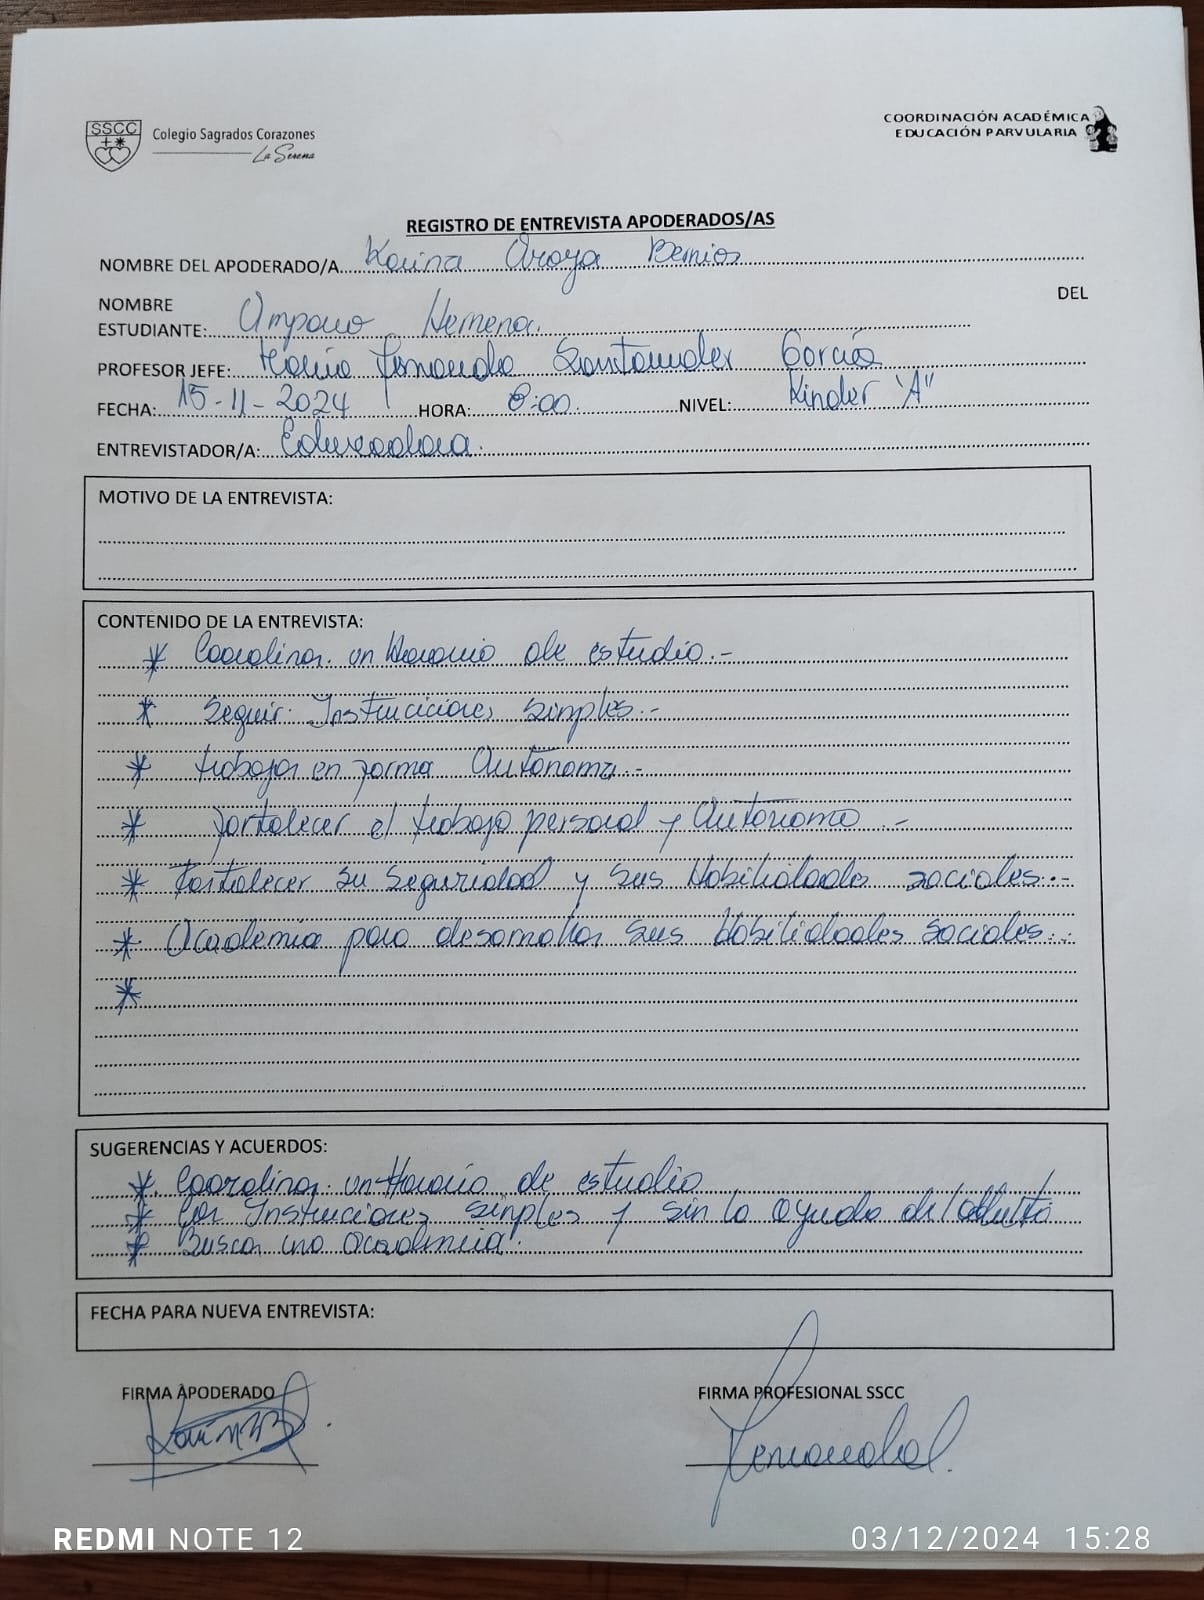 SSCC
Colegio Sagrados Corazones
La Serena
COORDINACIÓN ACADÉMICA
EDUCACIÓN PARVULARIA
REGISTRO DE ENTREVISTA APODERADOS/AS
NOMBRE DEL APODERADO/A Karina Araya Berrios
NOMBRE DEL
ESTUDIANTE: Amparo
PROFESOR JEFE: María Fernanda Santander García
FECHA: 15-11-2024 HORA: 8:00 NIVEL: Kinder "A"
ENTREVISTADOR/A: Educadora.
MOTIVO DE LA ENTREVISTA:
CONTENIDO DE LA ENTREVISTA:
* Coordinar un Horario de estudio.-
* Seguir Instrucciones simples.-
* trabajar en forma Autónoma.-
* fortalecer el trabajo personal y Autónomo.-
* Fortalecer su Seguridad y sus Habilidades sociales.-
* Academia para desarrollar sus Habilidades Sociales.-
*
SUGERENCIAS Y ACUERDOS:
* Coordinar un Horario de estudio
* Instrucciones simples y sin la ayuda del adulto
* Buscar una academia.
FECHA PARA NUEVA ENTREVISTA:
FIRMA APODERADO FIRMA PROFESIONAL SSCC
REDMI NOTE 12 03/12/2024 15:28